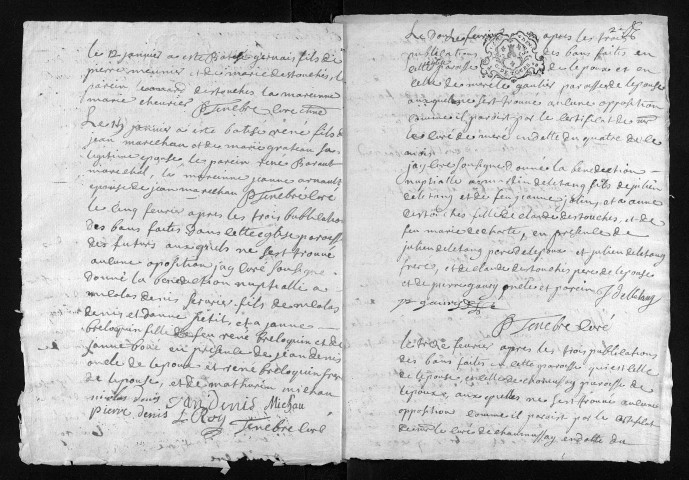 le 12 janvier a este Batisé gervais fils de
pierre meunier et de marie destouches, le
parein leonard destouches la mareinne
marie cheurier P Tenebre Curé
Le 14 janvier a este batisé rené fils de
jean marechau et de marie grateau sa
legitime epouse, les parein rené Barault
marechal, la mareinne jeanne arnault
epouse de jean marechau P Tenebre Curé
le cinq feurier apres les trois publications
des bans faits dans cette eglise paroisse
des futurs auxquels ne s'est trouué
aulcune opposition jay curé soussigné
donné la benediction nuptialle a
nicolas denis serurier fils de nicolas
denis et d'anne petits et a jeanne
breloquin fille de feu rené breloquin et de
jeanne boué en presence de jean denis
oncle de lepoux et rené breloquin frere
de lepouse, et de mathurin michau
nicolas denis Jan Denis Michau
pierre denis L Roy P Tenebre Curé
Le dousse feurier apres les trois
publications des bans faits en
cette paroisse de lepoux et en
celle de mere le gaulier paroisse de lepouse
auxquels ne s'est trouué aulcune opposition
comme il paroist par le certificat de mr
le curé de mere en datte du quatre de ce
mois
jay curé soussigné donné la benediction
nuptialle a martin deletang fils de julien
deletang et de feu jeanne jolin, et a anne
destouches fille de claude destouches, et de
feu marie decharte, en presence de
julien deletang pere de lepoux et julien deletang
frere, et de claude destouches pere de lepouse
et de pierre gaury oncle et parein J deletang
p gaury
P Tenebre Curé
le treise feurier apres les trois publications
des bans faits en cette paroisse qui est celle
de lepouse en celle de chaumussay paroisse de
lepoux, auxquelles ne s'est trouué aulcune
opposition comme il paroist par le certificat
de mr le curé de chaumussay en datte du